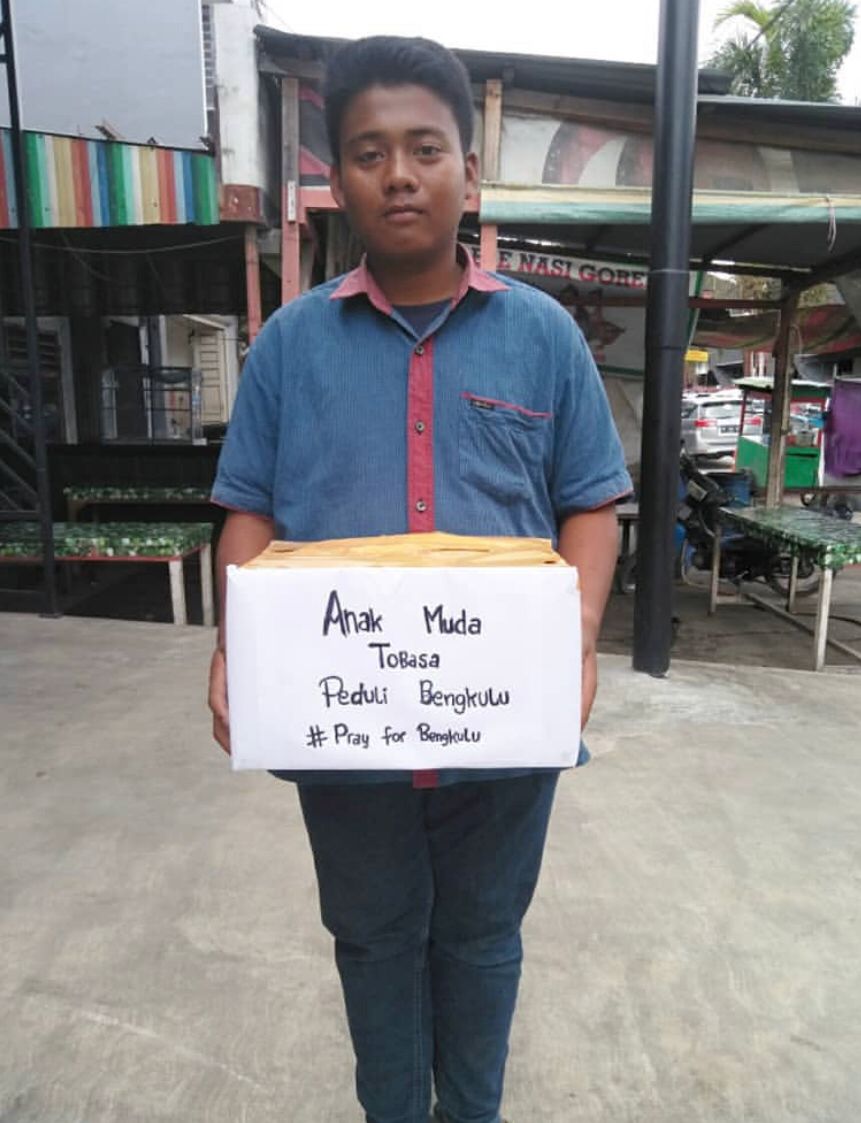 NASI GORE
Anak Muda
ToBasa
Peduli Bengkulu
# Pray for Bengkulu